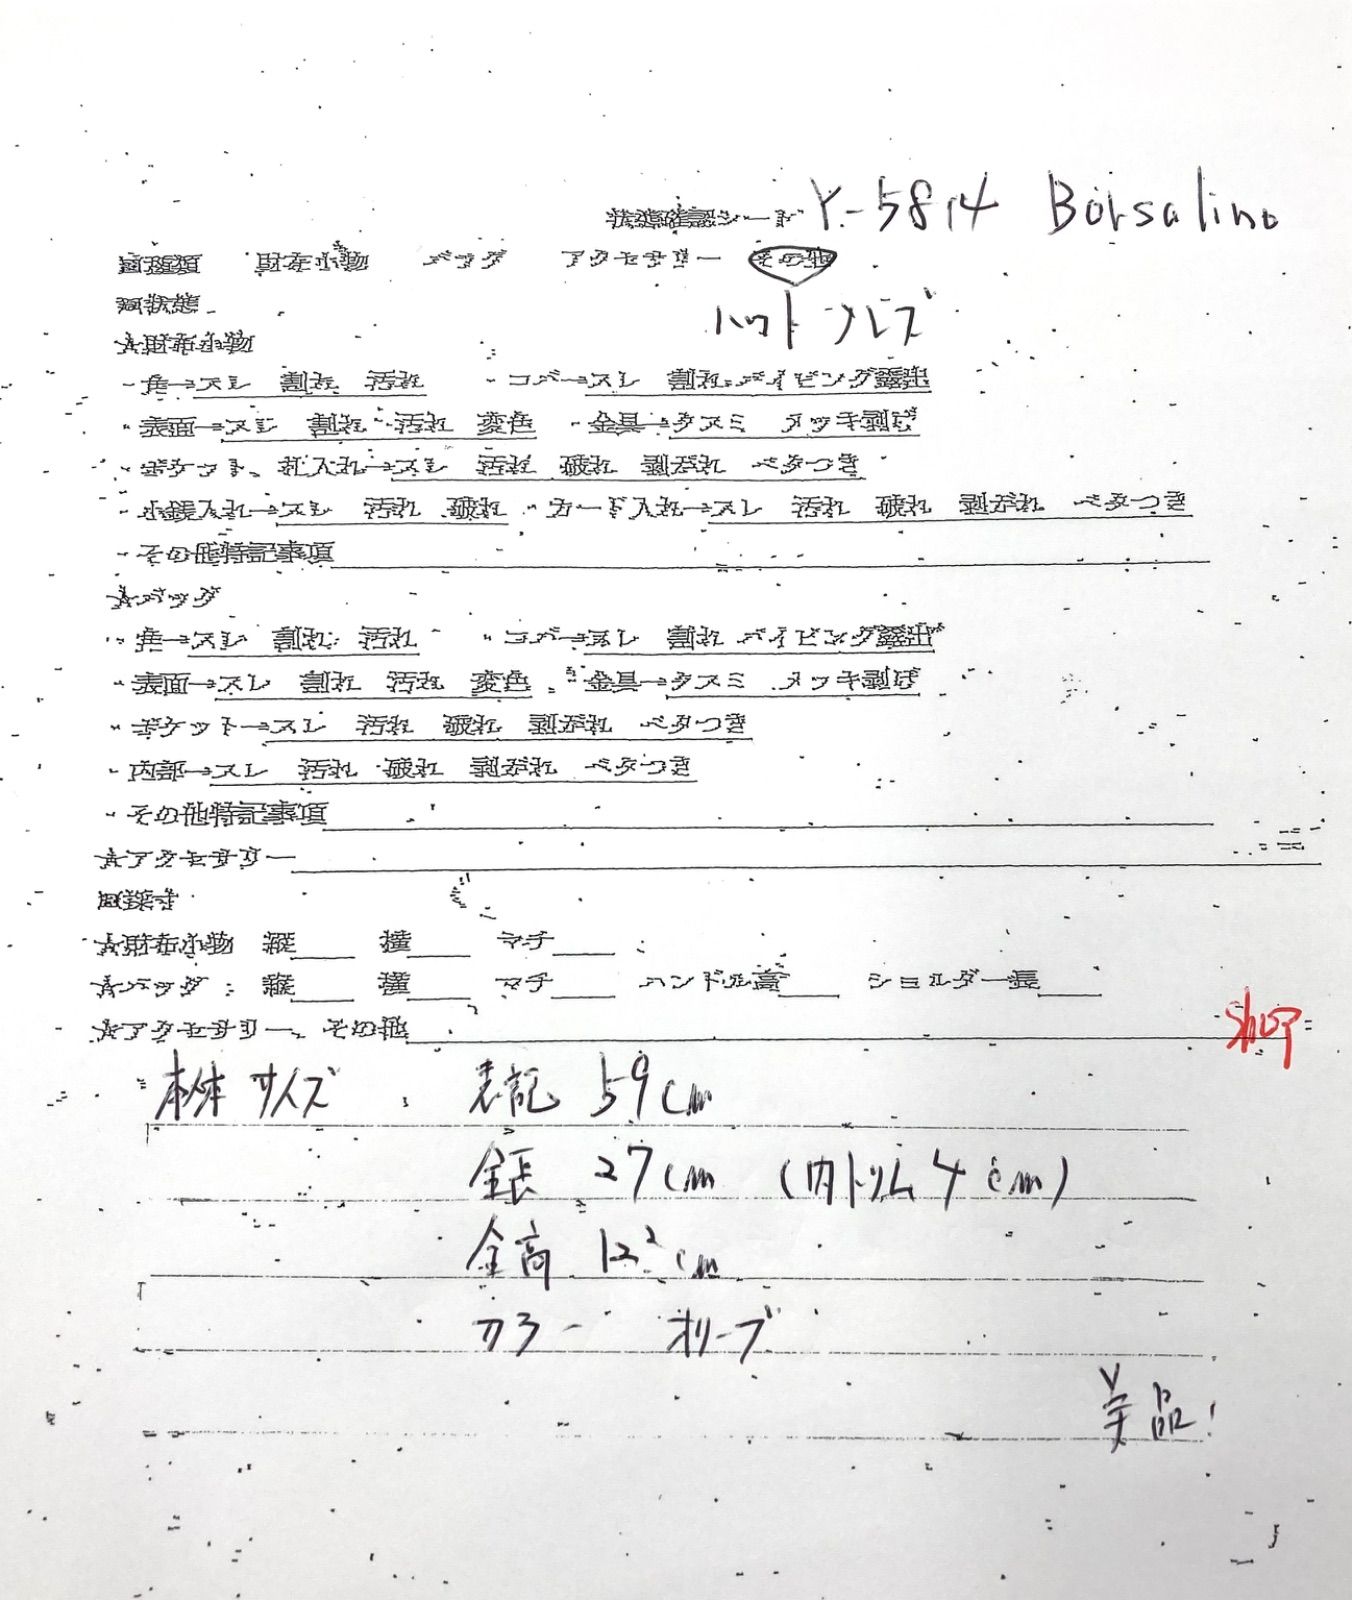 状態確認シート Y-5814 Borsalino
■種類 財布小物 バッグ アクセサリー その他
■状態
ハット メレズ
★財布小物
・角→スレ 割れ 汚れ ・コバ→スレ 割れ パイピング露出
・表面→スレ 割れ 汚れ 変色 ・金具→クスミ メッキ剥げ
・ポケット、札入れ→スレ 汚れ 破れ 剥がれ ベタつき
・小銭入れ→スレ 汚れ 破れ ・カード入れ→スレ 汚れ 破れ 剥がれ ベタつき
・その他特記事項
★バッグ
・角→スレ 割れ 汚れ ・コバ→スレ 割れ パイピング露出
・表面→スレ 割れ 汚れ 変色 ・金具→クスミ メッキ剥げ
・ポケット→スレ 汚れ 破れ 剥がれ ベタつき
・内部→スレ 汚れ 破れ 剥がれ ベタつき
・その他特記事項
★アクセサリー
■採寸
★財布小物 縦 横 マチ
★バッグ：縦 横 マチ ハンドル高 ショルダー長
★アクセサリー、その他
本体サイズ 表記 59cm
全長 27cm (内トリム4cm)
全高 12²cm
カラー オリーブ
美品!